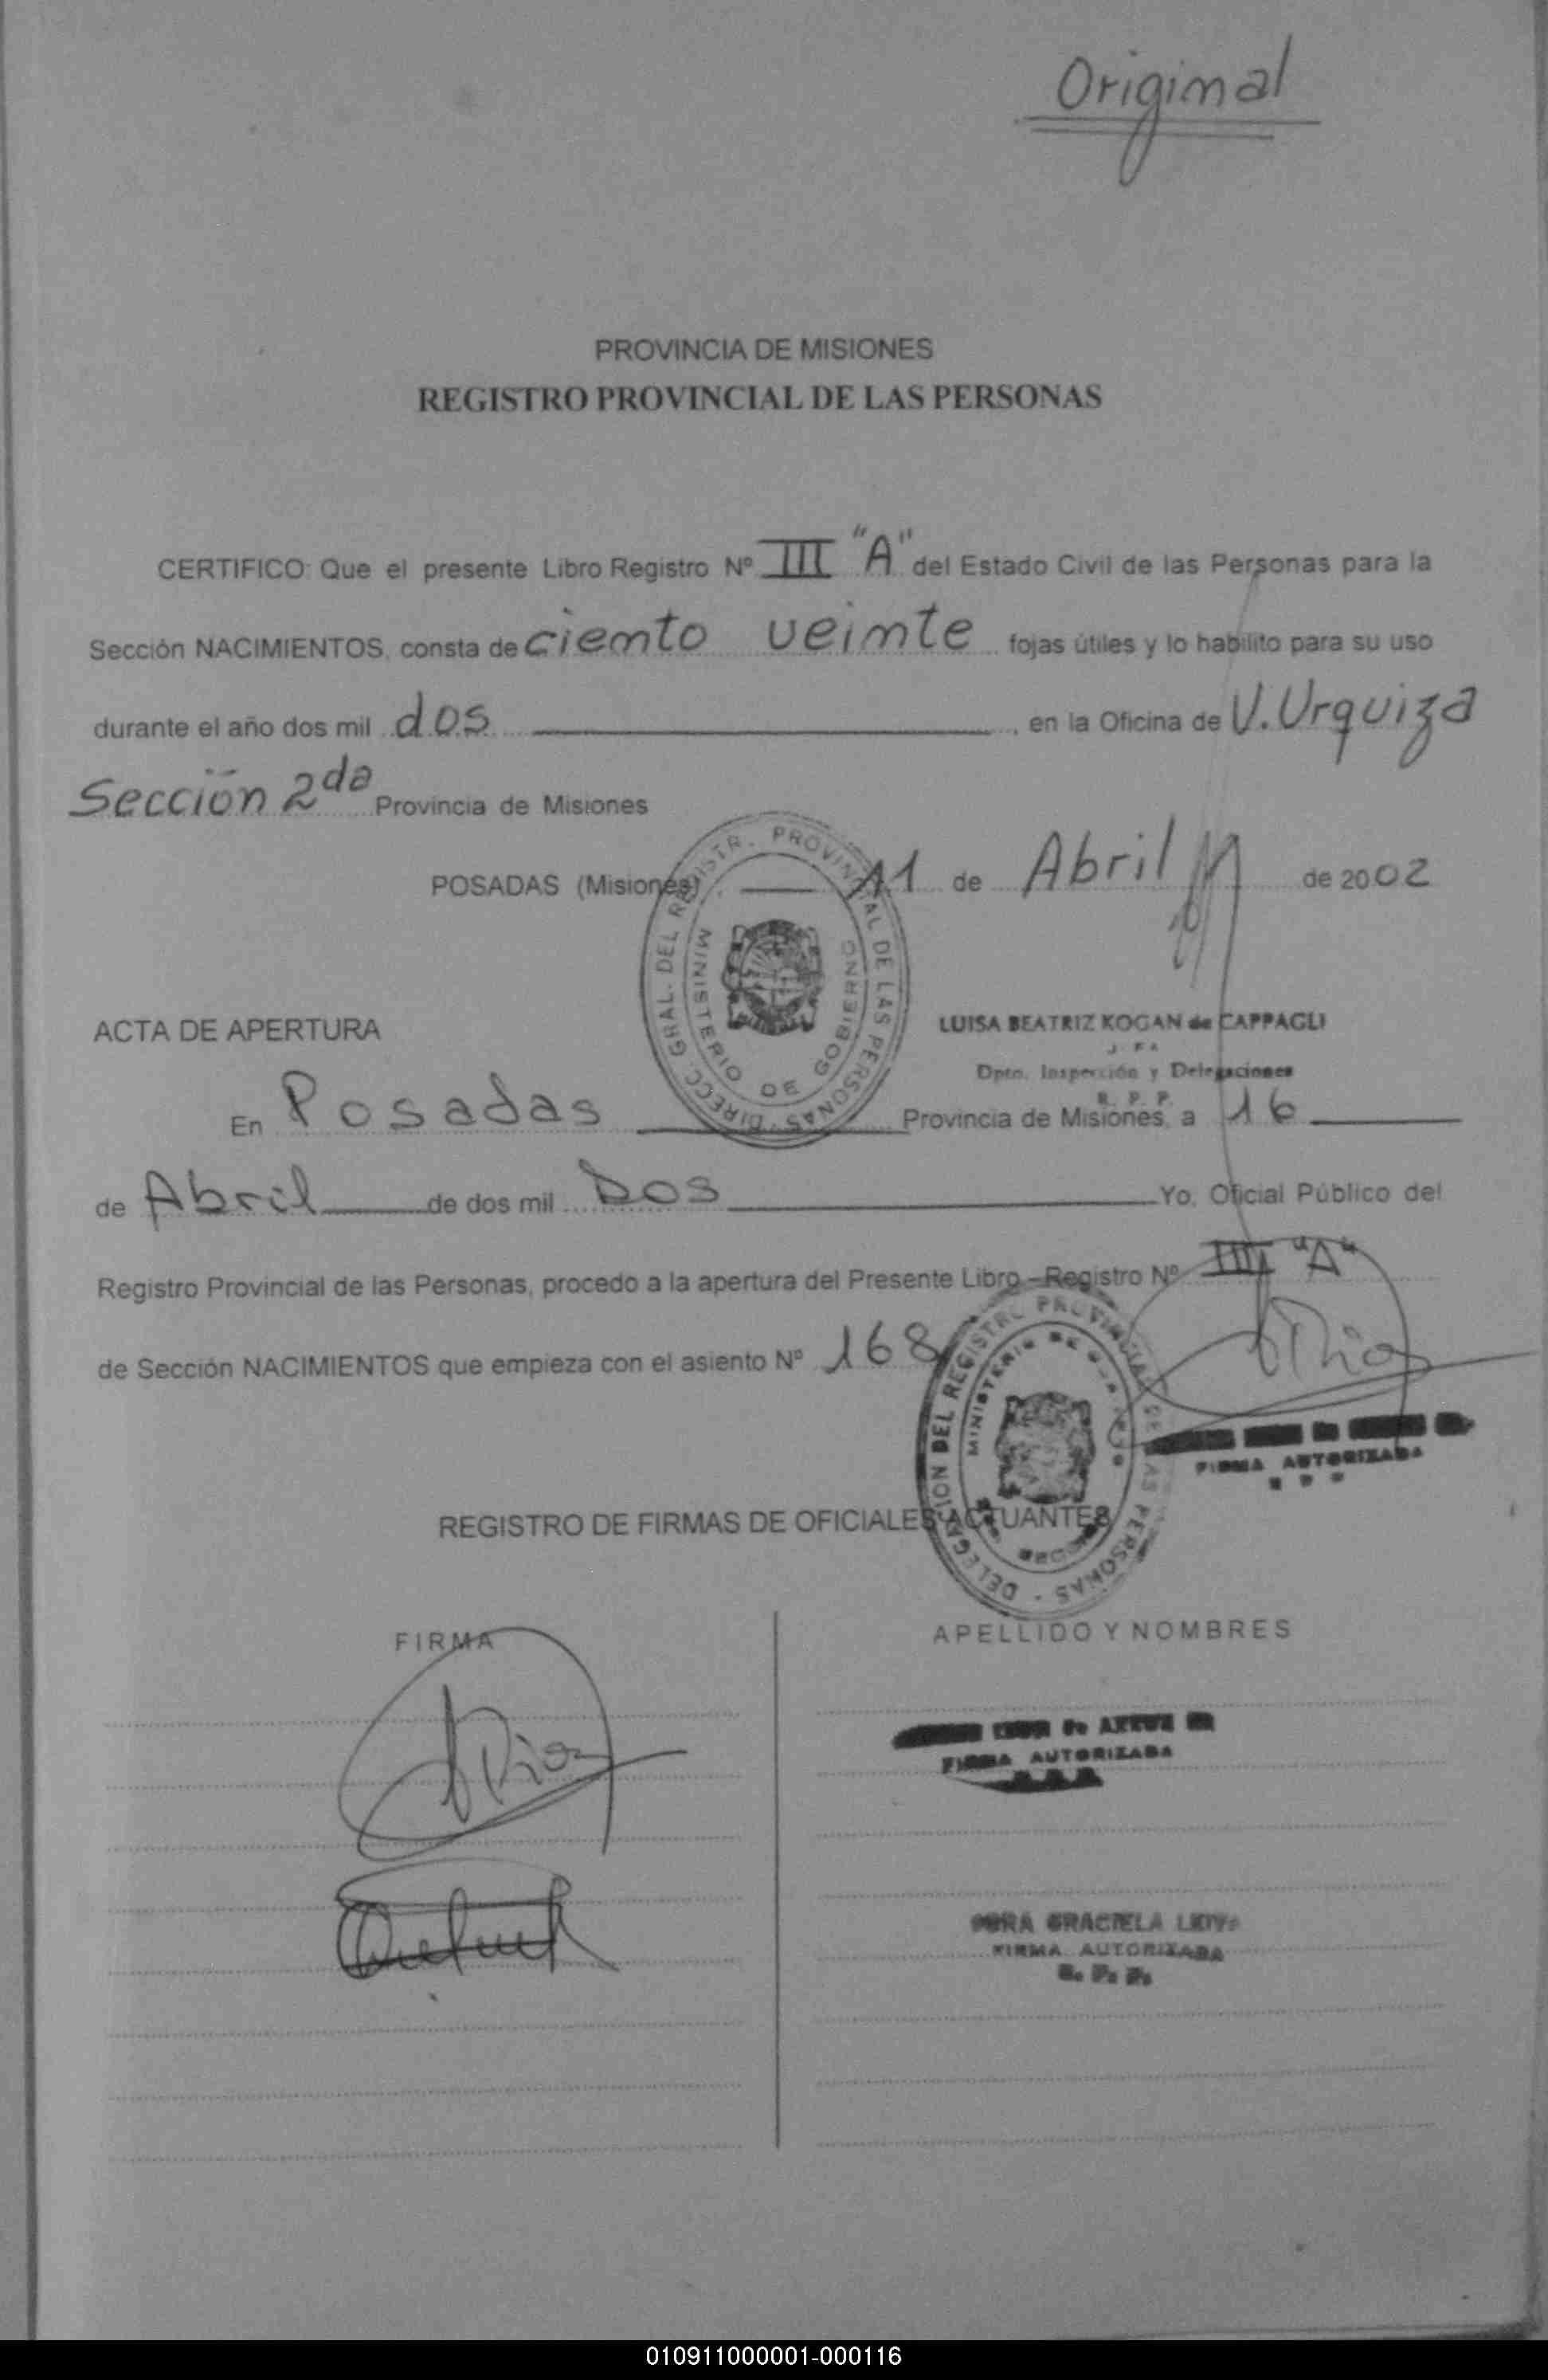 Original
PROVINCIA DE MISIONES
REGISTRO PROVINCIAL DE LAS PERSONAS
CERTIFICO: Que el presente Libro Registro Nº III "A" del Estado Civil de las Personas para la
Sección NACIMIENTOS, consta de ciento veinte fojas útiles y lo habilito para su uso
durante el año dos mil dos, en la Oficina de V. Urquiza
Sección 2da Provincia de Misiones
POSADAS (Misiones) 11 de Abril de 2002
DIRECC. GRAL. DEL REGISTR. PROVINCIAL DE LAS PERSONAS
MINISTERIO DE GOBIERNO
ACTA DE APERTURA
LUISA BEATRIZ KOGAN de CAPPAGLI
Dpto. Inspección y Delegaciones
R. P. P.
En Posadas Provincia de Misiones, a 16
de Abril de dos mil Dos Yo, Oficial Público del
Registro Provincial de las Personas, procedo a la apertura del Presente Libro - Registro Nº III "A"
de Sección NACIMIENTOS que empieza con el asiento Nº 168
DELEGACION DEL REGISTRO PROVINCIAL DE LAS PERSONAS
MINISTERIO DE
FIRMA AUTORIZADA
REGISTRO DE FIRMAS DE OFICIALES ACTUANTES
FIRMA
APELLIDO Y NOMBRES
FIRMA AUTORIZADA
GRACIELA
FIRMA AUTORIZADA
R. P. P.
010911000001-000116